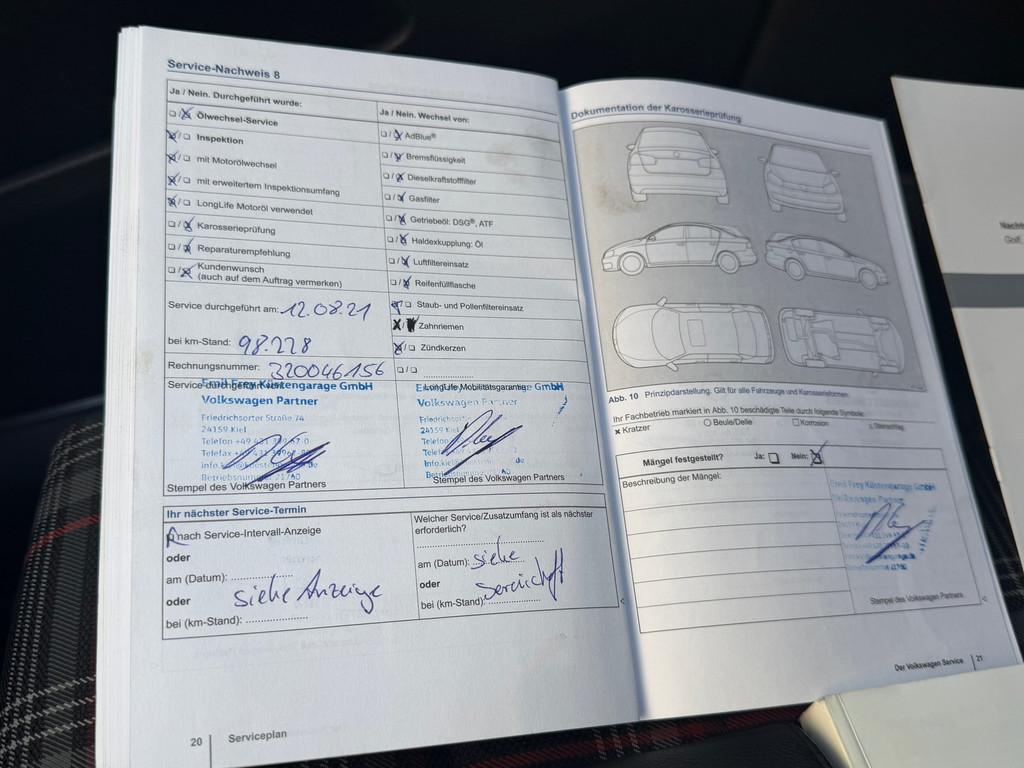 Service-Nachweis 8
Ja / Nein. Durchgeführt wurde:
Ölwechsel-Service
Inspektion
mit Motorölwechsel
mit erweitertem Inspektionsumfang
LongLife Motoröl verwendet
Karosserieprüfung
Reparaturempfehlung
Kundenwunsch
(auch auf dem Auftrag vermerken)
Service durchgeführt am: 12.08.21
bei km-Stand: 98.228
Rechnungsnummer: 320046156
Service durchgeführt
Emil Frey Küstengarage GmbH
Volkswagen Partner
Friedrichsorter Straße 74
24159 Kiel
Telefon +49 431
Telefax +49 431
Betriebsnummer 21760
Stempel des Volkswagen Partners
Ja / Nein. Wechsel von:
AdBlue®
Bremsflüssigkeit
Dieselkraftstofffilter
Gasfilter
Getriebeöl: DSG®, ATF
Haldexkupplung: Öl
Luftfiltereinsatz
Reifenfüllflasche
Staub- und Pollenfiltereinsatz
Zahnriemen
Zündkerzen
LongLife Mobilitätsgarantie
GmbH
Volkswagen Partner
24159 Kiel
Stempel des Volkswagen Partners
Ihr nächster Service-Termin
nach Service-Intervall-Anzeige
oder
am (Datum):
oder
siehe Anzeige
bei (km-Stand):
Welcher Service/Zusatzumfang ist als nächster
erforderlich?
am (Datum): siehe
oder
bei (km-Stand):
20 Serviceplan
Dokumentation der Karosserieprüfung
Abb. 10 Prinzipdarstellung. Gilt für alle Fahrzeuge und Karosserieformen.
Ihr Fachbetrieb markiert in Abb. 10 beschädigte Teile durch folgende Symbole:
x Kratzer
Beule/Delle
Korrosion
Steinschlag
Mängel festgestellt? Ja: Nein:
Beschreibung der Mängel:
Emil Frey Küstengarage GmbH
Volkswagen Partner
Stempel des Volkswagen Partners
Der Volkswagen Service 21
Golf